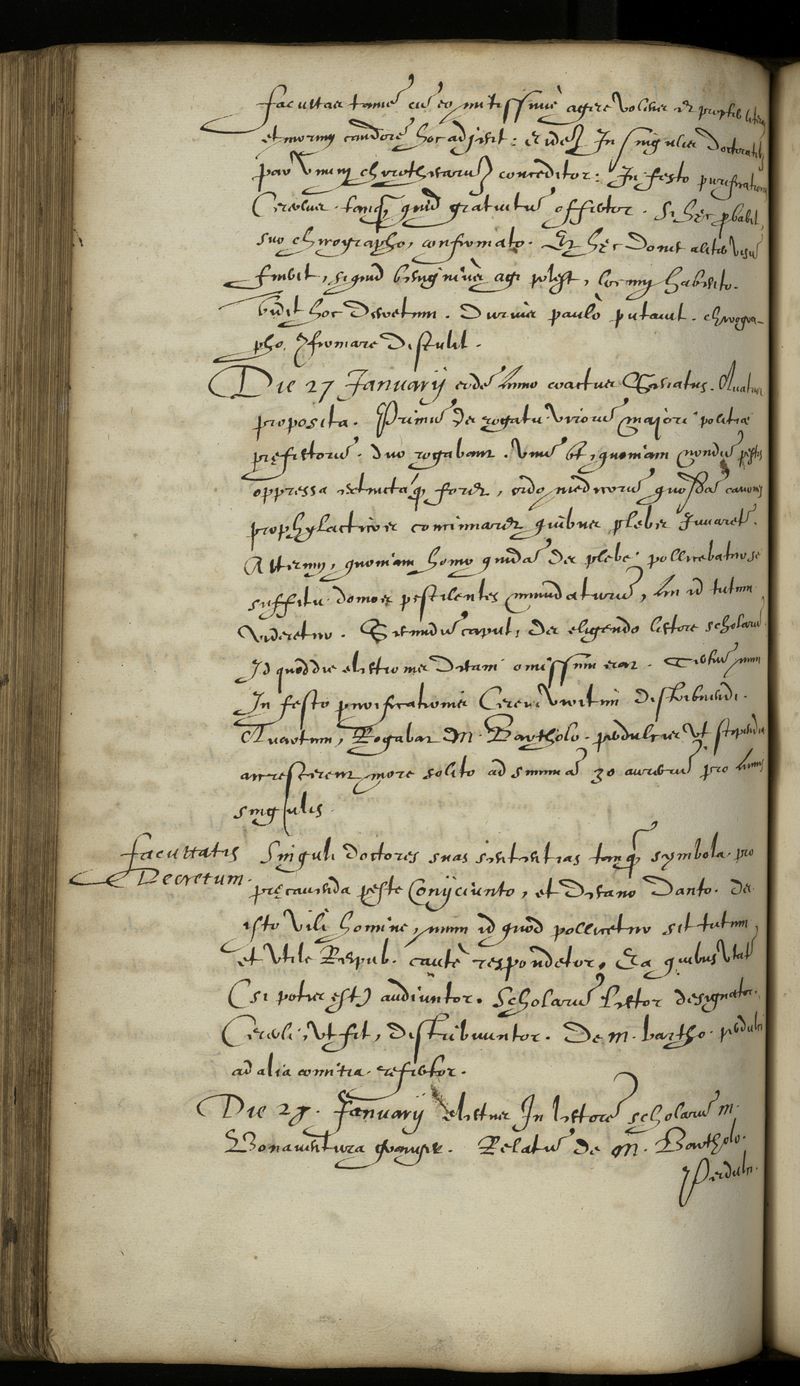 facultas tamē cū eo mitissimè agere voluit et propter
et morum candorē hoc adjecit: et idē In singulis Doctoratib
par Unum chirothecarū conceditor: In festo purificationis
Cereolus tanq̄ quid gratuitū offertor. Si hęc probabit,
suo chirographo, confirmato. Et hęc donec alitèr visū
fuerit, si quid benigniùs agi potest, locum habeto.
hoc Decretum. Durius paulò putavit. chirogra-
pho, ꝯfirmare Distulit.
Die 27 Januarij eodē Anno coactus Senatus. Quatuor
proposita. Primū De rogatu Uriorum majori politiæ
pręfectorū. duo rogabant. Unū est, quoniam nondū pestis
oppressa extinctaq́ foret, ordo medicorū quosdā canones
prophylacticos concinnaret quibus plebs Juuaret.
Alterum, quoniam homo quidā De plebe pollicebatur se
suffitu domos pestilentes mundaturū, An id tutum
Videretur. Secundū caput, De eligendo lectore scholarū
Id quod die electionis Decani omissum erat. Tertiū,
In festo purificationis Cerei Distribuendi.
Quartum, Rogabat M. Bartholo. perdulcis Ut stipendia
accrescerent more solito ad summā 30 aureorū pro Annis
singulis.
facultatis Decretum.
Singuli doctores suas sententias tanq̄ symbola pro
pręcauenda peste Conijciunto, et Decano Danto. De
isto Vili homine, num id quod pollicetur sit tutum,
et Utile Reipub. cautè respondetor. Ea quibus Utat
(si potis est) audiuntor. Scholarū Lector designator.
Cereoli, Ut fit, Distribuuntor. De m. bartho. perdulci
ad alia comitia refertor.
Die 28. Januarij electus In lectorē scholarū m.
Bonauentura. Relatū De M. Bartholo.
Perdulci.